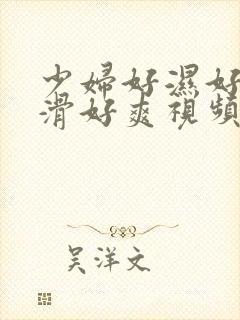 少婦好濕好
滑好爽視頻
吴洋文